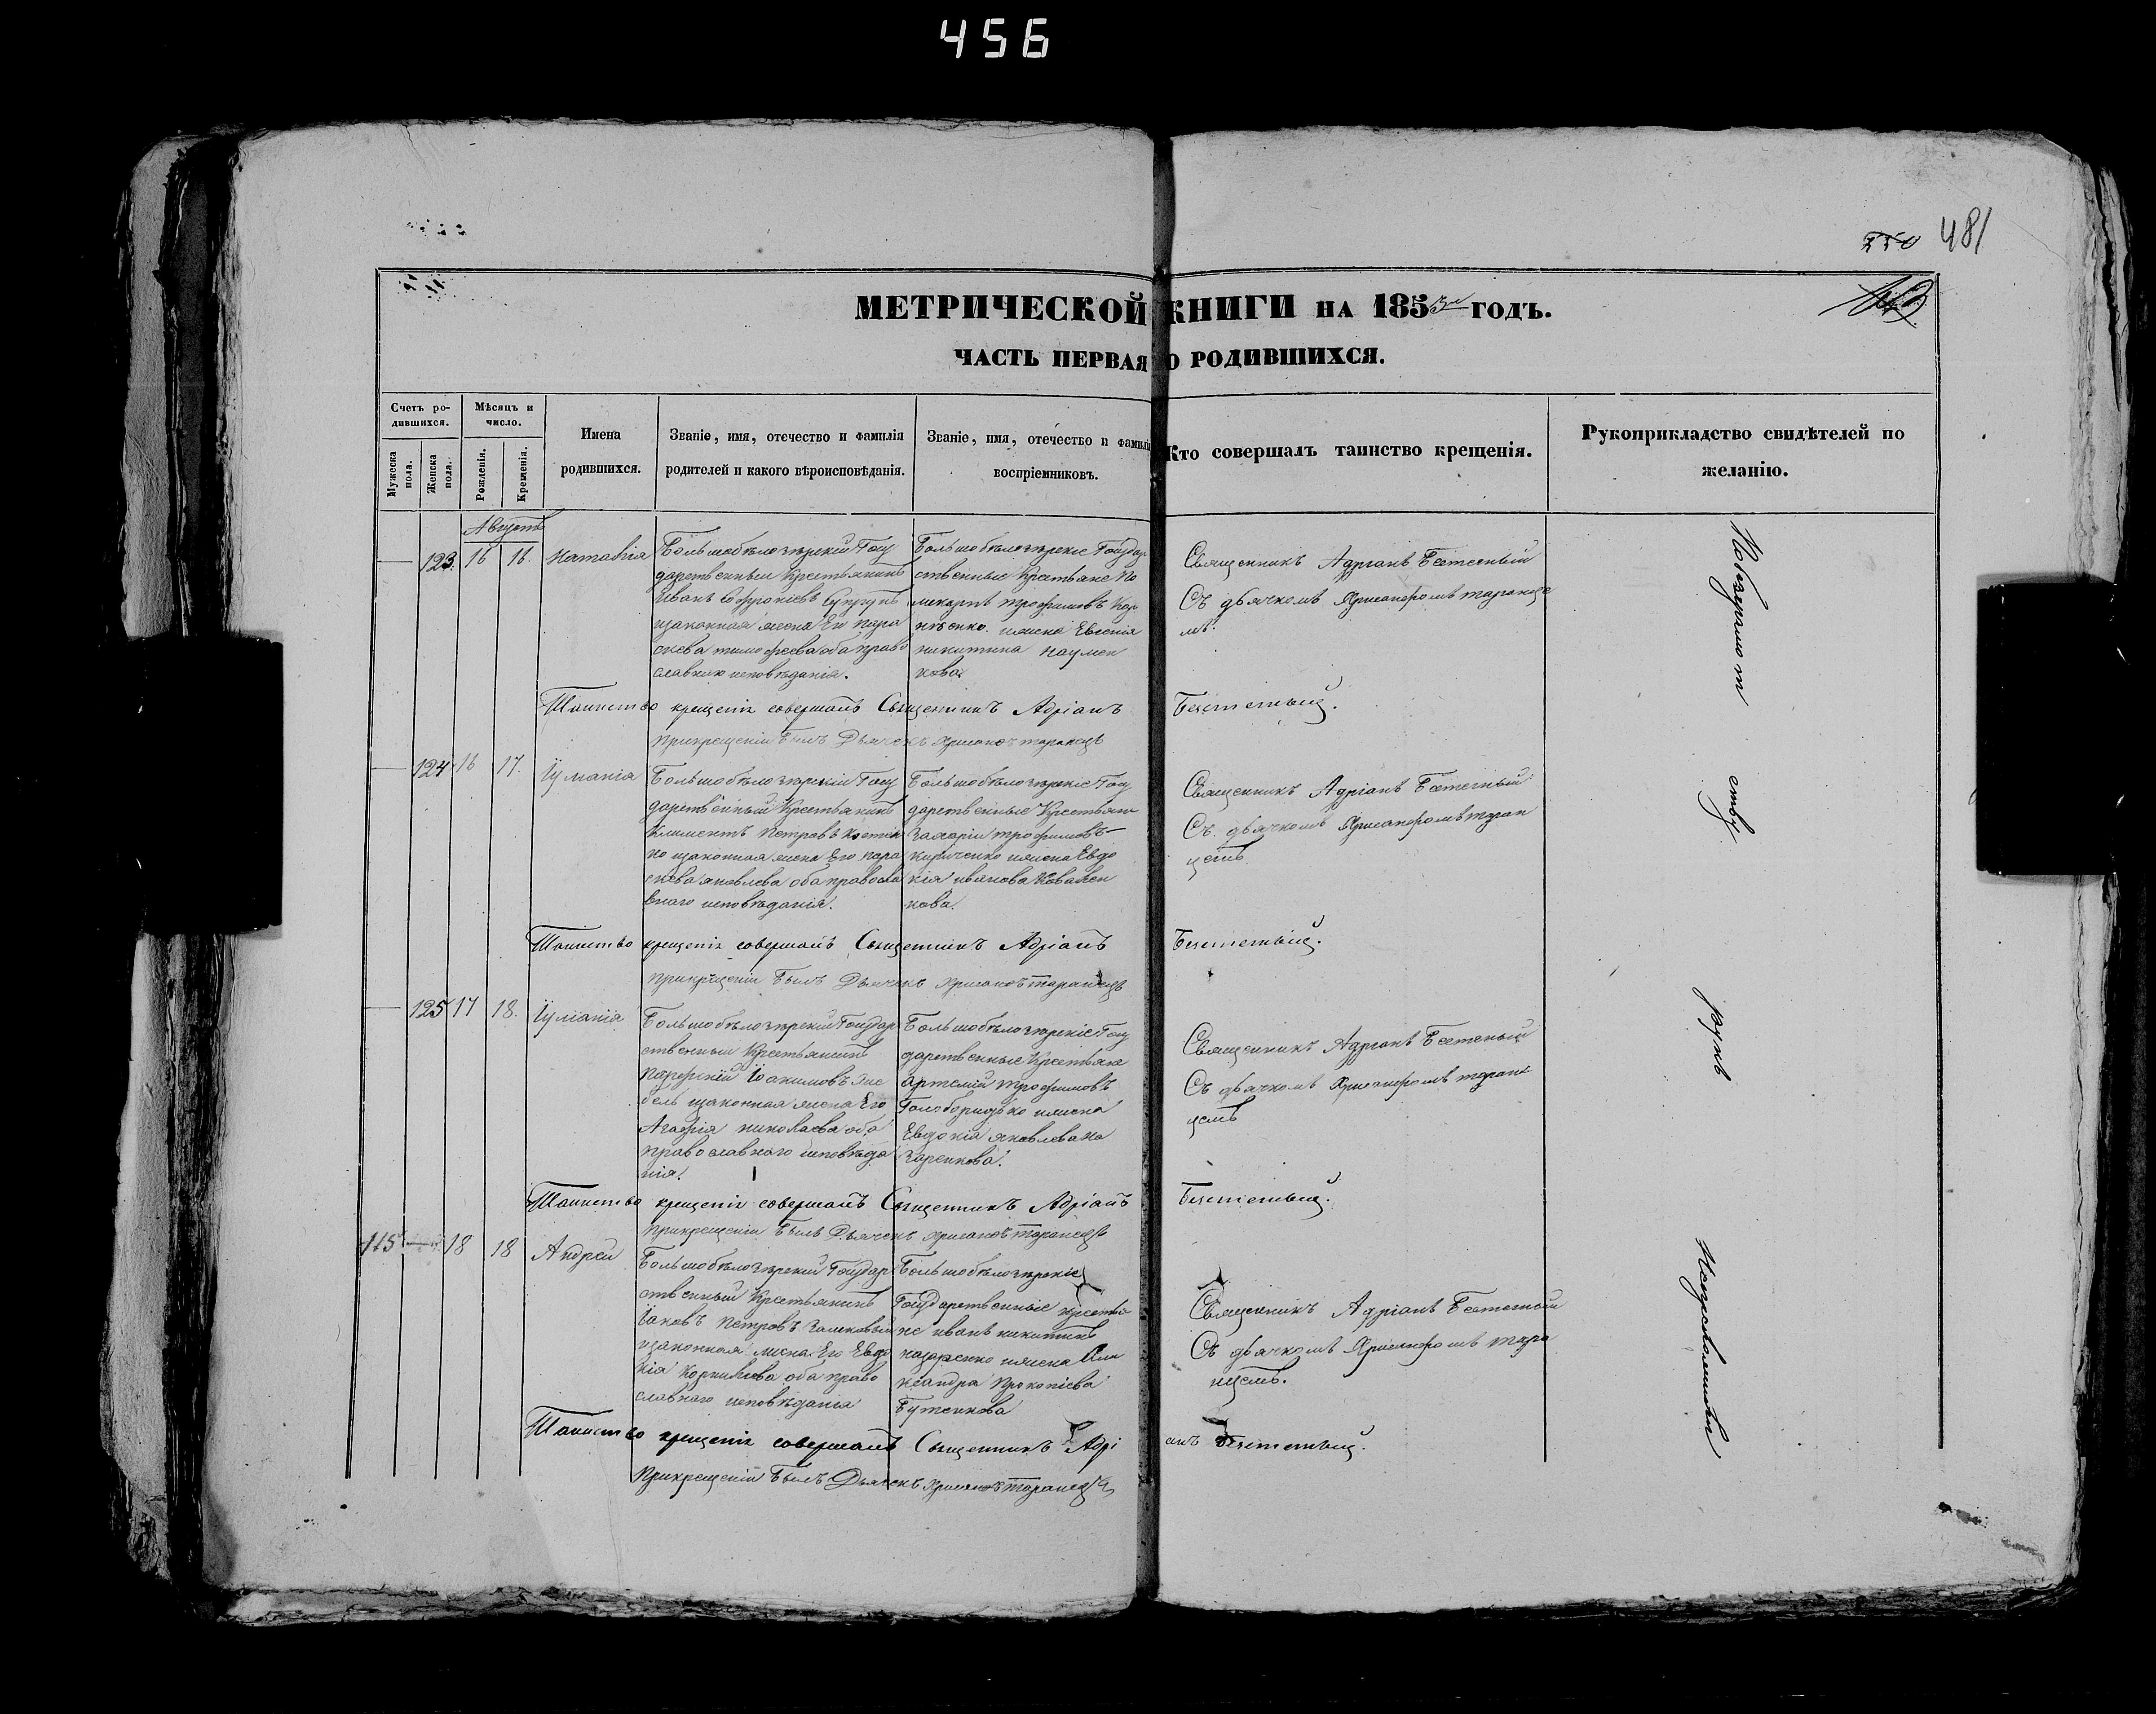 456
481
МЕТРИЧЕСКОЙ КНИГИ НА 1853 ГОДЪ.
ЧАСТЬ ПЕРВАЯ О РОДИВШИХСЯ.
Счетъ ро-
дившихся.
Мужеска пола.
Женска пола.
Мѣсяцъ и
число.
Рожденія.
Крещенія.
Имена
родившихся.
Званіе, имя, отечество и фамилія
родителей и какого вѣроисповѣданія.
Званіе, имя, отечество и фамилія
воспріемниковъ.
Кто совершалъ таинство крещенія.
Рукоприкладство свидѣтелей по
желанію.
Августъ
123. 16 16. Наталія
Большобѣлозѣрскій Госу
дарственный Крестьянинъ
Иванъ Софроніевъ Супрунъ
изаконная жена Его Пара
скева тимофеева оба право
славнаго исповѣданія.
Большобѣлозѣрскіе Государ
ственные Крестьяне По
ликарпъ трофимовъ Кор
нѣенко. ижена Евгенія
никитина наумен
кова.
Священникъ Адріанъ
Съ дьячкомъ Хрисанфомъ таранце
мъ.
Таинство крещенія совершалъ Священникъ Адріанъ
Прикрещеніи былъ Дьячекъ Хрисанѳъ таранецъ
124 16 17. Іуліанія
Большобѣлозѣрскій Госу
дарственный Крестьянинъ
Климентъ Петровъ Костен
ко изаконная жена Его пара
скева яковлева оба правосла
внаго исповѣданія.
Большобѣлозѣрскіе Госу
дарственные Крестьяне
Захарій трофимовъ
Кириченко ижена Евдо
кія иванова Ковален
кова.
Священникъ Адріанъ
Съ дьячкомъ Хрисанфомъ таран
цемъ.
Таинство крещенія совершалъ Священникъ Адріанъ
Прикрещеніи былъ Дьячекъ Хрисанѳъ таранецъ
125 17 18. Іуліанія
Большобѣлозѣрскій Государ
ственный Крестьянинъ
Порфирій Іоакимовъ
изаконная жена Его
Агафія николаева оба
православнаго исповѣда
нія.
Большобѣлозѣрскіе Госу
дарственные Крестьяне
Артемій трофимовъ
Голобородько ижена
Евдокія яковлева на
заренкова.
Священникъ Адріанъ
Съ дьячкомъ Хрисанфомъ таран
цемъ
Таинство крещенія совершалъ Священникъ Адріанъ
Прикрещеніи былъ Дьячекъ Хрисанѳъ таранецъ
115 18 18 Андрей
Большобѣлозѣрскій Государ
ственный Крестьянинъ
Іаковъ Петровъ
изаконная жена Его Евдо
кія Корниліева оба право
славнаго исповѣданія
Большобѣлозѣрскіе
Государственные крестья
не иванъ никитинъ
назаренко ижена Але
ксандра Прокопіева
Бутенкова
Священникъ Адріанъ
Съ дьячкомъ Хрисанфомъ тара
нцемъ.
Таинство крещенія совершалъ Священникъ Адрі анъ
Прикрещеніи былъ Дьячекъ Хрисанѳъ таранецъ